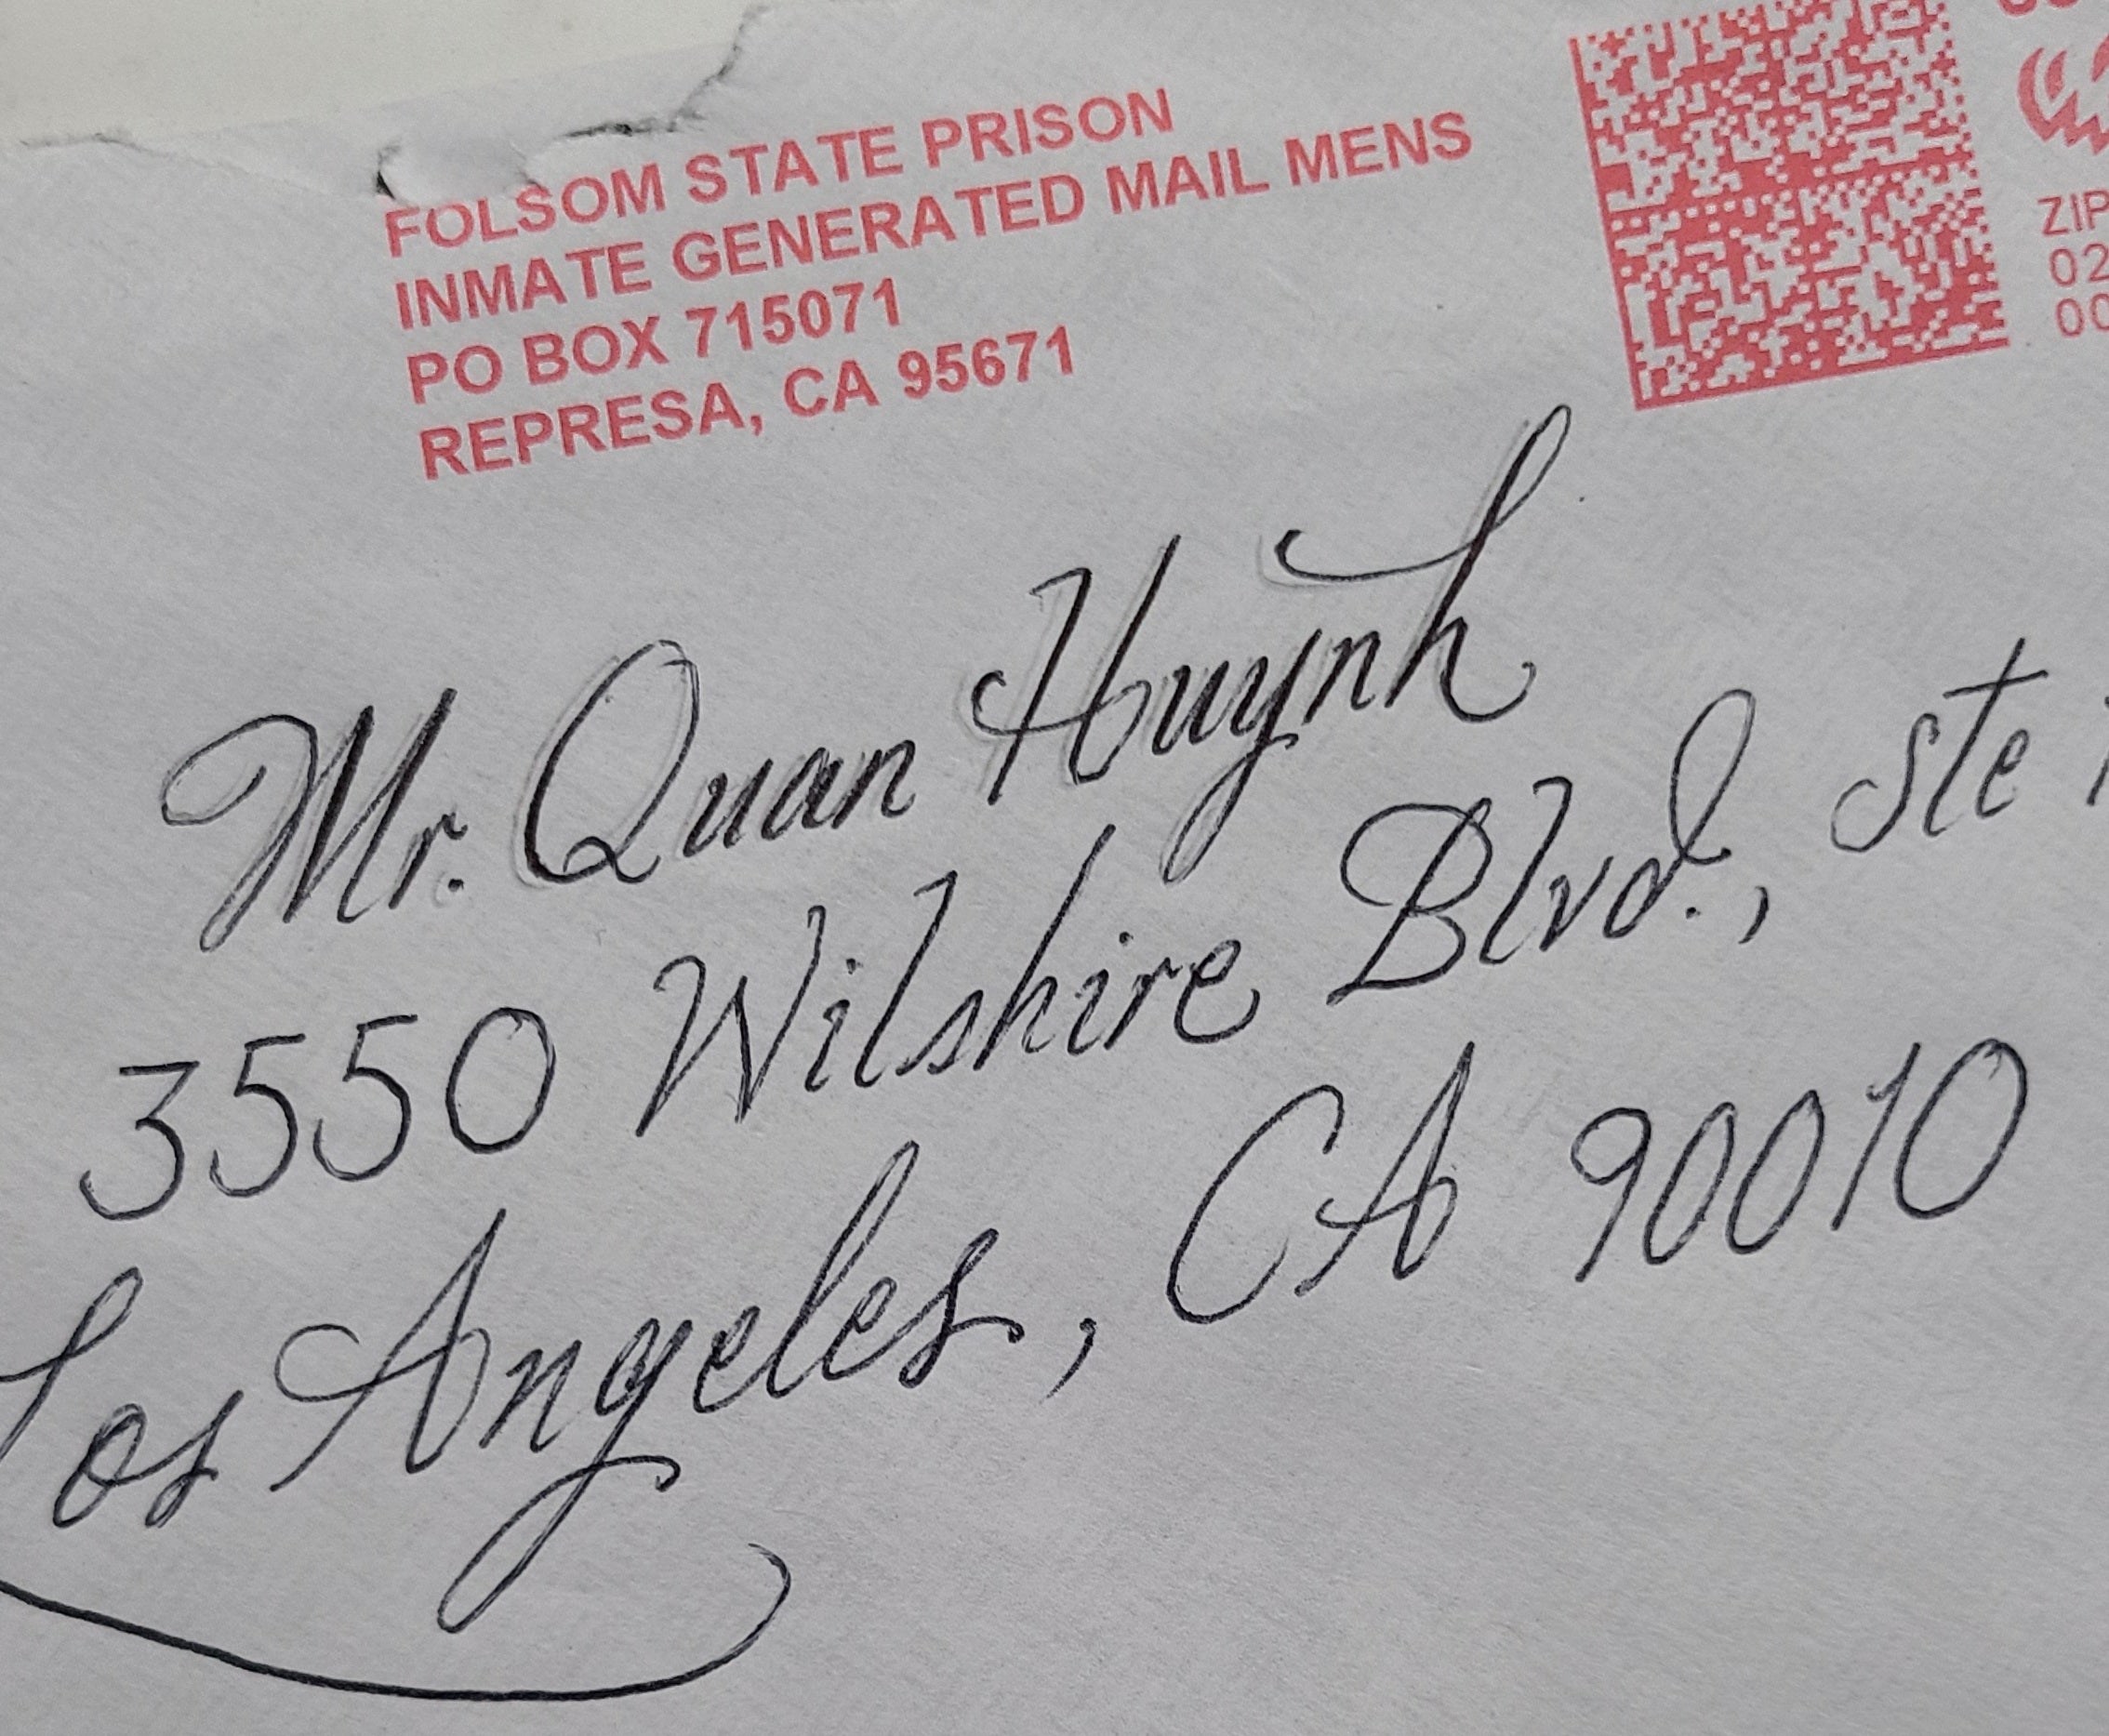 FOLSOM STATE PRISON
INMATE GENERATED MAIL MENS
PO BOX 715071
REPRESA, CA 95671
ZIP
02
00
Mr. Quan Huynh
3550 Wilshire Blvd., Ste
Los Angeles, CA 90010